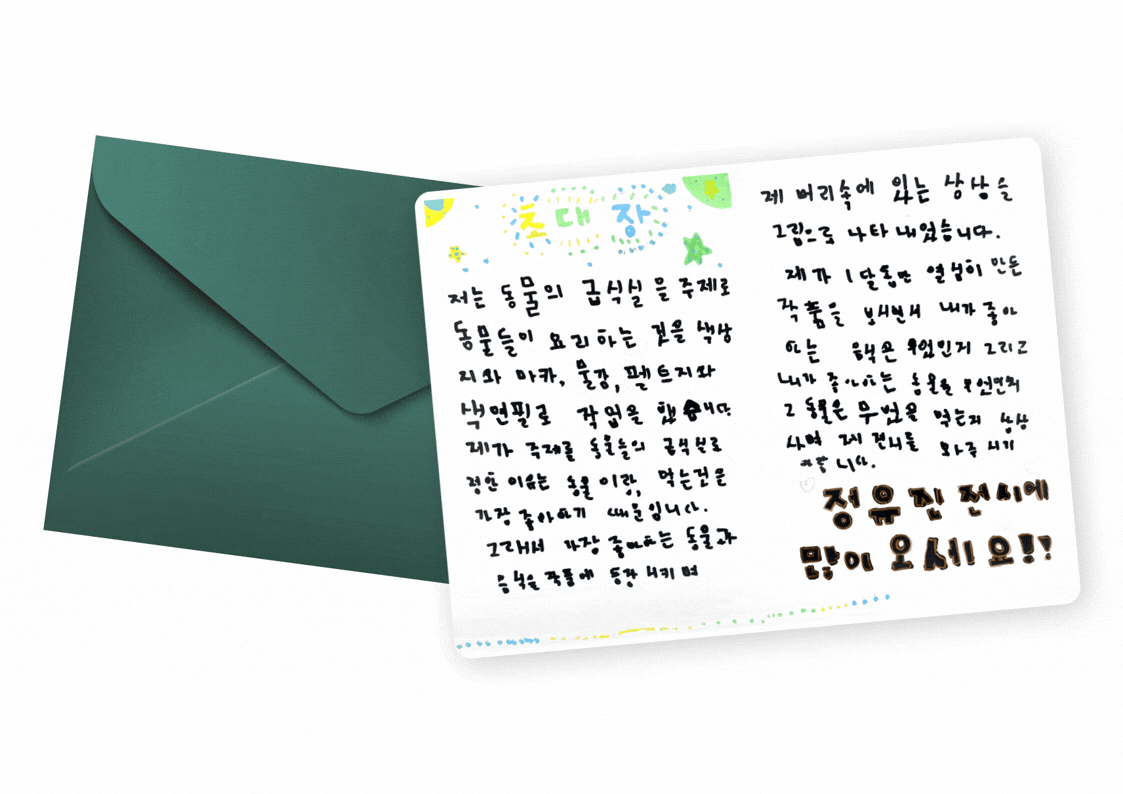 초대장
저는 동물의 급식실을 주제로
동물들이 요리하는 것을 색상
지와 마카, 물감, 펠트지와
색연필로 작업을 했습니다
제가 주제를 동물들의 급식실로
정한 이유는 동물이랑, 먹는것을
가장 좋아하기 때문입니다.
그래서 가장 좋아하는 동물과
음식을 작품에 등장시키며
제 머리속에 있는 상상을
그림으로 나타내었습니다.
제가 1달동안 열심히 만든
작품을 보시면서 내가 좋아
하는 음식은 무엇인지 그리고
내가 좋아하는 동물은 무엇인지
그 동물은 무엇을 먹는지 상상
하며 제 전시를 와주시기
바랍니다.
정유진 전시에
많이 오세요!!